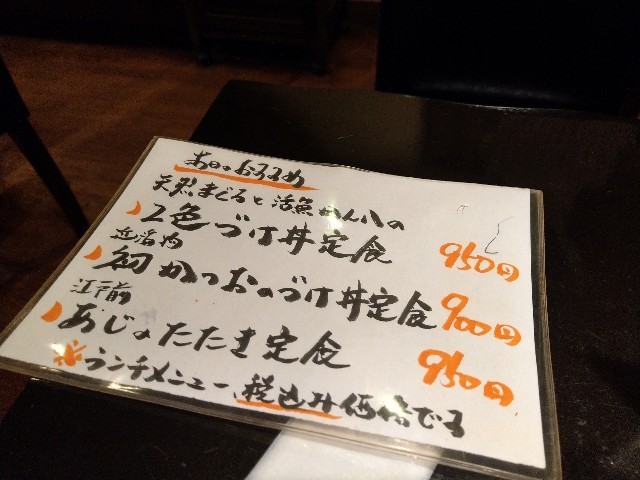 本日のおすすめ
天然まぐろと活魚かん八の
2色づけ丼定食 950円
近海内
初かつおのづけ丼定食 900円
江戸前
あじのたたき定食 950円
※ランチメニュー、税込み価格です